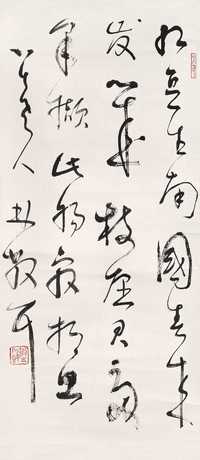 红豆生南國春来
发几枝愿君多
采撷此物最相思
老人林散耳